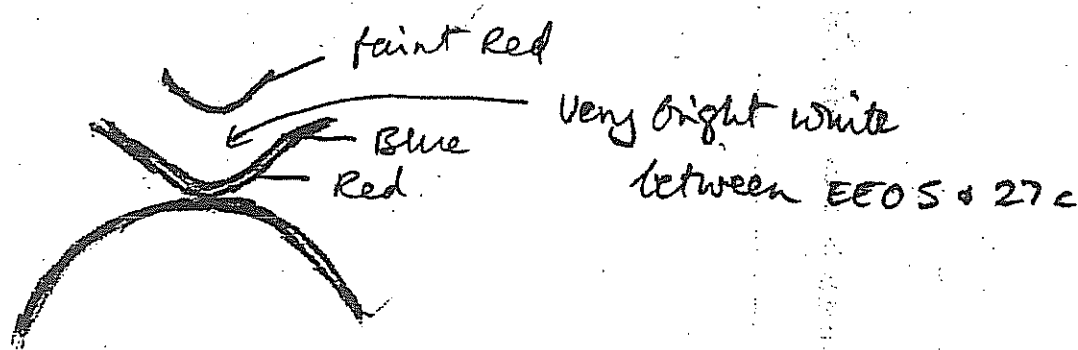 faint Red
Very bright white
Blue
between EE05 & 27c
Red